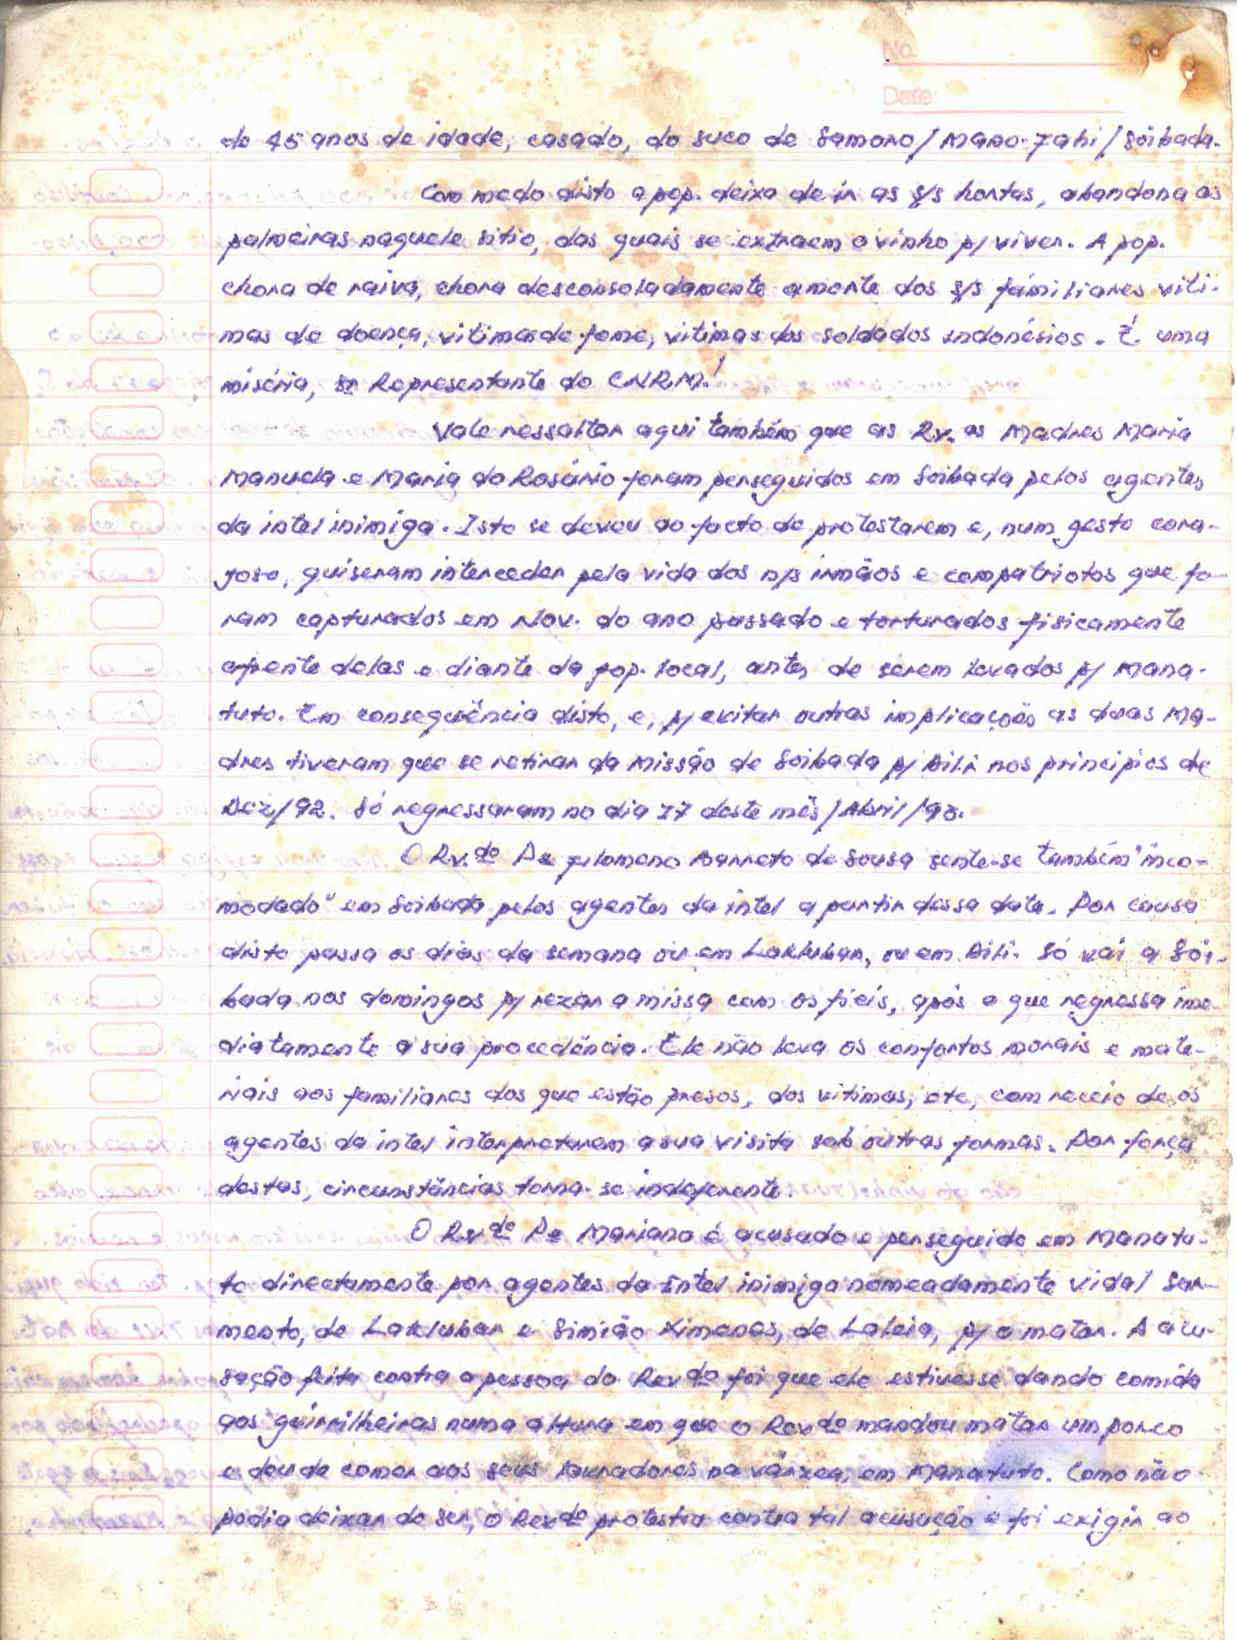 No.
Date:
de 45 anos de idade, casado, do suco de Samoro/Mano-Tahi/Soibada.
Com medo disto a pop. deixa de ir as s/s hortas, abandona as
palmeiras naquele sitio, das quais se extraem o vinho p/ viver. A pop.
chora de raiva, chora desconsoladamente a morte dos s/s familiares viti-
mas de doença, vitimas de fome, vitimas dos soldados indonésios. É uma
miséria, Sr Representante do CNRM!
Vale ressaltar aqui também que as Rv.as Madres Maria
Manuela e Maria do Rosário foram perseguidos em Soibada pelos agentes
da intel inimiga. Isto se deveu ao facto de protestarem e, num gesto cora-
joso, quiseram interceder pela vida dos n/s irmãos e compatriotas que fo-
ram capturados em Nov. do ano passado e torturados fisicamente
a frente delas e diante da pop. local, antes de serem levados p/ Mana-
tuto. Em consequência disto, e, p/ evitar outras implicações as duas Ma-
dres tiveram que se retirar da Missão de Soibada p/ Dili nos principios de
Dez/92. Só regressaram no dia 17 deste mês/Abril/93.
O Rv.do Pe Filomeno Barreto de Sousa sente-se também "inco-
modado" em Soibada pelos agentes da intel a partir dessa data. Por causa
disto passa os dias da semana ou em Lakluban, ou em Dili. Só vai a Soi-
bada nos domingos p/ rezar a missa com os fieis, após o que regressa ime-
diatamente á sua procedência. Ele não leva os confortos morais e mate-
riais aos familiares dos que estão presos, dos vitimas, etc, com receio de os
agentes da intel interpretarem a sua visita sob outras formas. Por força
destas, circunstâncias torna-se indeferente.
O Rv.do Pe Mariano é acusado e perseguido em Manatu-
to directamente por agentes da Intel inimiga nomeadamente Vidal Sar-
mento, de Lakluban e Simião Ximenes, de Laleia, p/ o matar. A acu-
sação feita contra a pessoa do Rev.do foi que ele estivesse dando comida
aos guirrilheiros numa altura em que o Rev.do mandou matar um porco
e deu de comer aos seus lavradores na várzea, em Manatuto. Como não
podia deixar de ser, o Rev.do protestra contra tal acusação e foi exigir ao